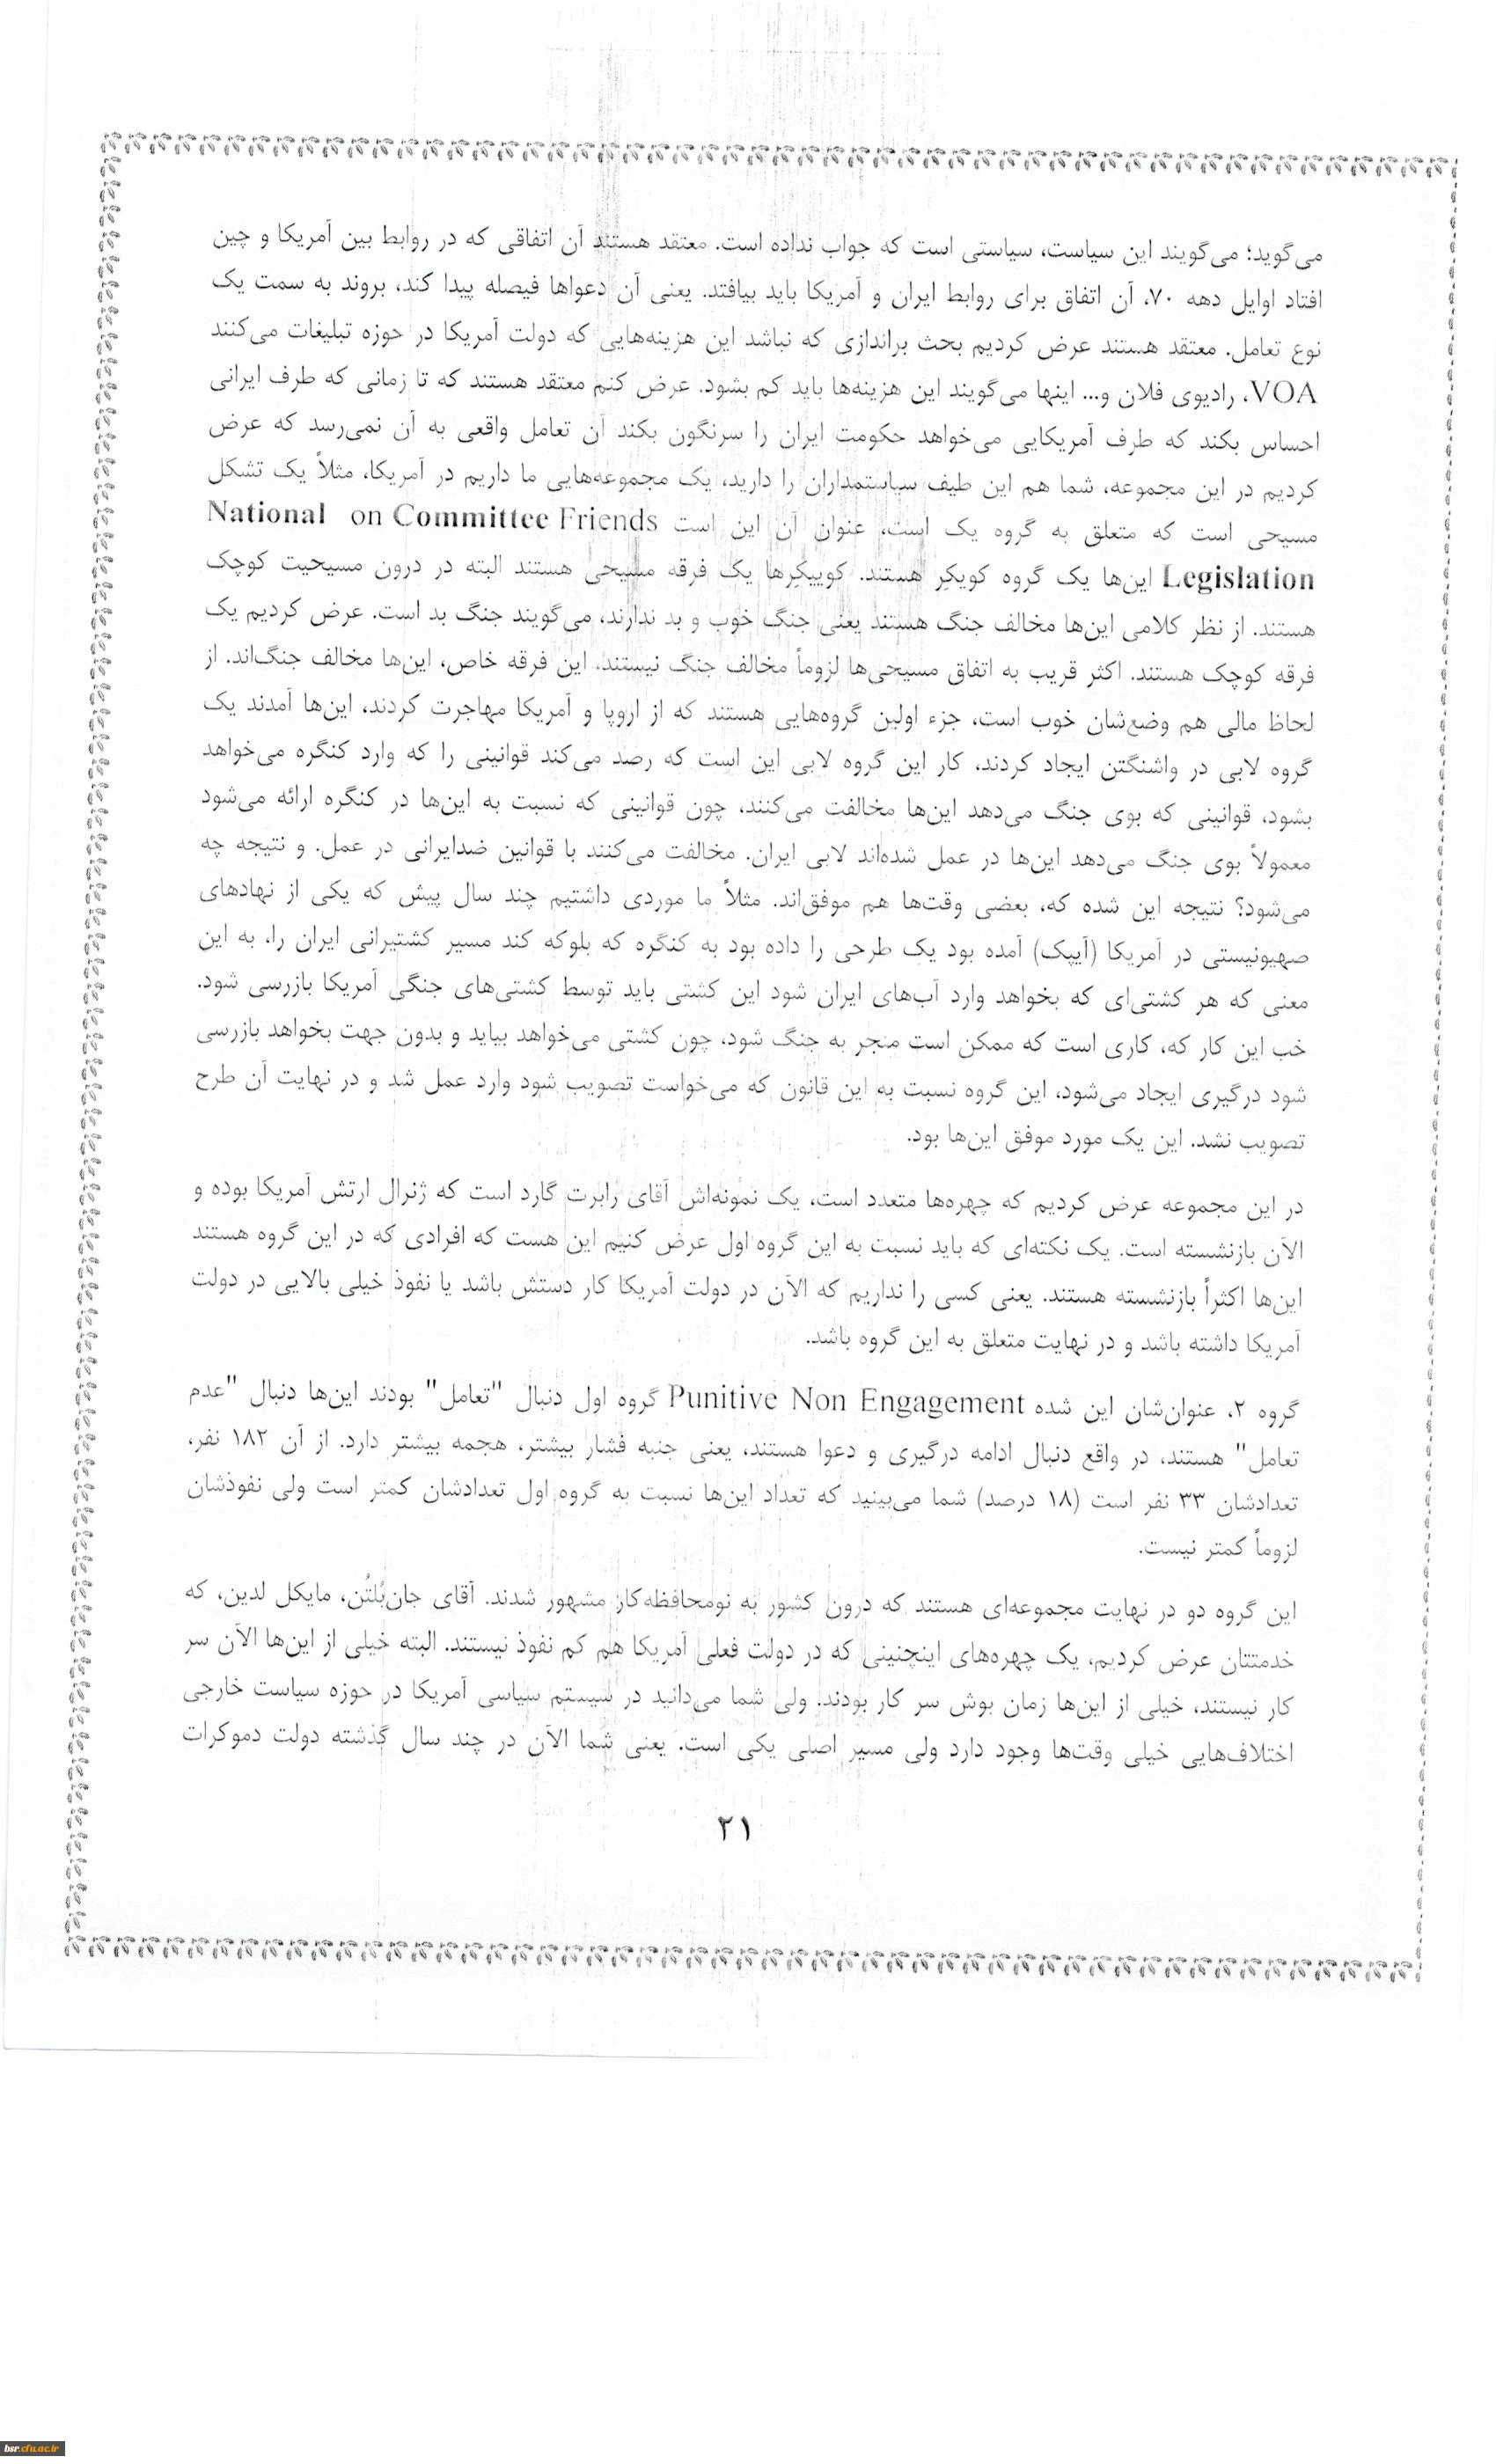 می‌گوید؛ می‌گویند این سیاست، سیاستی است که جواب نداده است. معتقد هستند آن اتفاقی که در روابط بین آمریکا و چین
افتاد اوایل دهه ۷۰، آن اتفاق برای روابط ایران و آمریکا باید بیافتد. یعنی آن دعواها فیصله پیدا کند، بروند به سمت یک
نوع تعامل. معتقد هستند عرض کردیم بحث براندازی که نباشد این هزینه‌هایی که دولت آمریکا در حوزه تبلیغات می‌کنند
VOA، رادیوی فلان و... اینها می‌گویند این هزینه‌ها باید کم بشود. عرض کنم معتقد هستند که تا زمانی که طرف ایرانی
احساس بکند که طرف آمریکایی می‌خواهد حکومت ایران را سرنگون بکند آن تعامل واقعی به آن نمی‌رسد که عرض
کردیم در این مجموعه، شما هم این طیف سیاستمداران را دارید، یک مجموعه‌هایی ما داریم در آمریکا، مثلاً یک تشکل
مسیحی است که متعلق به گروه یک است، عنوان آن این است National on Committee Friends
Legislation این‌ها یک گروه کویکِر هستند. کوییکِرها یک فرقه مسیحی هستند البته در درون مسیحیت کوچک
هستند. از نظر کلامی این‌ها مخالف جنگ هستند یعنی جنگ خوب و بد ندارند، می‌گویند جنگ بد است. عرض کردیم یک
فرقه کوچک هستند. اکثر قریب به اتفاق مسیحی‌ها لزوماً مخالف جنگ نیستند، این فرقه خاص، این‌ها مخالف جنگ‌اند. از
لحاظ مالی هم وضع‌شان خوب است، جزء اولین گروه‌هایی هستند که از اروپا و آمریکا مهاجرت کردند، این‌ها آمدند یک
گروه لابی در واشنگتن ایجاد کردند، کار این گروه لابی این است که رصد می‌کند قوانینی را که وارد کنگره می‌خواهد
بشود، قوانینی که بوی جنگ می‌دهد این‌ها مخالفت می‌کنند، چون قوانینی که نسبت به این‌ها در کنگره ارائه می‌شود
معمولاً بوی جنگ می‌دهد این‌ها در عمل شده‌اند لابی ایران. مخالفت می‌کنند با قوانین ضدایرانی در عمل. و نتیجه چه
می‌شود؟ نتیجه این شده که، بعضی وقت‌ها هم موفق‌اند. مثلاً ما موردی داشتیم چند سال پیش که یکی از نهادهای
صهیونیستی در آمریکا (آیپک) آمده بود یک طرحی را داده بود به کنگره که بلوکه کند مسیر کشتیرانی ایران را، به این
معنی که هر کشتی‌ای که بخواهد وارد آب‌های ایران شود این کشتی باید توسط کشتی‌های جنگی آمریکا بازرسی شود.
خب این کار که، کاری است که ممکن است منجر به جنگ شود، چون کشتی می‌خواهد بیاید و بدون جهت بخواهد بازرسی
شود درگیری ایجاد می‌شود، این گروه نسبت به این قانون که می‌خواست تصویب شود وارد عمل شد و در نهایت آن طرح
تصویب نشد. این یک مورد موفق این‌ها بود.
در این مجموعه عرض کردیم که چهره‌ها متعدد است، یک نمونه‌اش آقای رابرت گارد است که ژنرال ارتش آمریکا بوده و
الآن بازنشسته است. یک نکته‌ای که باید نسبت به این گروه اول عرض کنیم این هست که افرادی که در این گروه هستند
این‌ها اکثراً بازنشسته هستند. یعنی کسی را نداریم که الآن در دولت آمریکا کار دستش باشد یا نفوذ خیلی بالایی در دولت
آمریکا داشته باشد و در نهایت متعلق به این گروه باشد.
گروه ۲، عنوان‌شان این شده Punitive Non Engagement گروه اول دنبال "تعامل" بودند این‌ها دنبال "عدم
تعامل" هستند، در واقع دنبال ادامه درگیری و دعوا هستند، یعنی جنبه فشار بیشتر، هجمه بیشتر دارد. از آن ۱۸۲ نفر،
تعدادشان ۳۳ نفر است (۱۸ درصد) شما می‌بینید که تعداد این‌ها نسبت به گروه اول تعدادشان کمتر است ولی نفوذشان
لزوماً کمتر نیست.
این گروه دو در نهایت مجموعه‌ای هستند که درون کشور به نومحافظه‌کار مشهور شدند. آقای جان‌بُلتُن، مایکل لدین، که
خدمتتان عرض کردیم، یک چهره‌های اینچنینی که در دولت فعلی آمریکا هم کم نفوذ نیستند. البته خیلی از این‌ها الآن سر
کار نیستند، خیلی از این‌ها زمان بوش سر کار بودند. ولی شما می‌دانید در سیستم سیاسی آمریکا در حوزه سیاست خارجی
اختلاف‌هایی خیلی وقت‌ها وجود دارد ولی مسیر اصلی یکی است. یعنی شما الآن در چند سال گذشته دولت دموکرات
۲۱
bsr.cfu.ac.ir